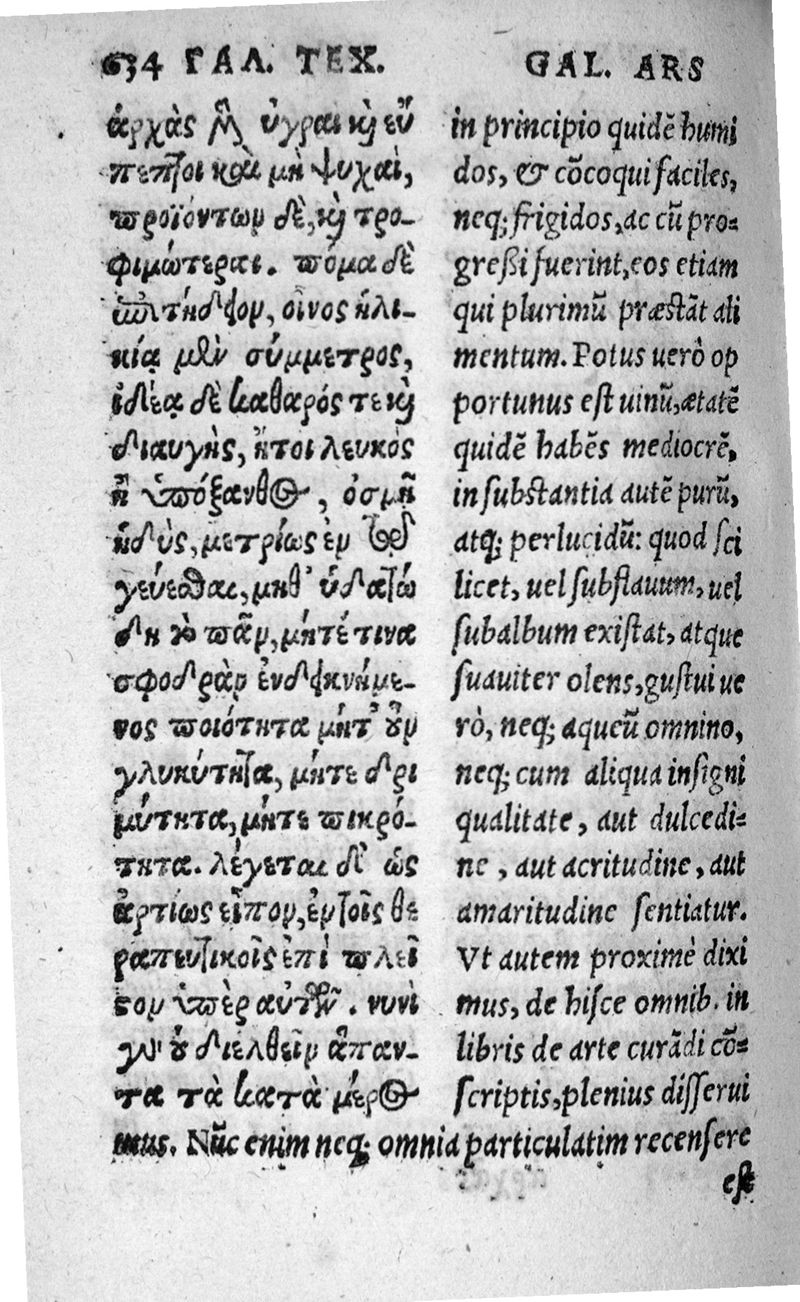 634 ΓΑΛ. ΤΕΧ.
ἀρχὰς μὲν ὑγραι κὶ εὔ
πεπτοι καὶ μὴ ψυχαὶ,
προϊόντων δὲ, κὶ τρο-
φιμώτεραι. πόμα δὲ
ἐπιτήδειον, οἶνος ἡλι-
κίᾳ μὲν σύμμετρος,
ἰδέᾳ δὲ καθαρός τε κὶ
διαυγὴς, ἤτοι λευκὸς
ἢ ὑπόξανθος, ὀσμῇ
ἡδὺς, μετρίως ἐν τῷ
γεύεσθαι, μηθ' ὑδατώ
δη τὸ πᾶν, μήτέ τινα
σφοδρὰν ἐνδεικνήμε-
νος ποιότητα μήτ' οὖν
γλυκύτητα, μήτε δρι
μύτητα, μήτε πικρό-
τητα. λέγεται δὲ ὡς
ἀρτίως εἶπον, ἐν τοῖς θε
ραπευτικοῖς ἐπὶ πλεῖ
στον ὑπὲρ αὐτῶν. νυνὶ
γὰρ οὐ διελθεῖν ἅπαν-
τα τὰ κατὰ μέρος
GAL. ARS
in principio quidẽ humi
dos, & cõcoqui faciles,
neq; frigidos, ac cũ pro=
greßi fuerint, eos etiam
qui plurimũ præstãt ali
mentum. Potus uerò op
portunus est uinũ, ætatẽ
quidẽ habẽs mediocrẽ,
in substantia autẽ purũ,
atq; perlucidũ: quod sci
licet, uel subflauum, uel
subalbum existat, atque
suauiter olens, gustui ue
rò, neq; aqueũ omnino,
neq; cum aliqua insigni
qualitate, aut dulcedi=
ne, aut acritudine, aut
amaritudine sentiatur.
Vt autem proximè dixi
mus, de hisce omnib. in
libris de arte curãdi cõ=
scriptis, plenius disserui
mus. Nũc enim neq; omnia particulatim recensere
est